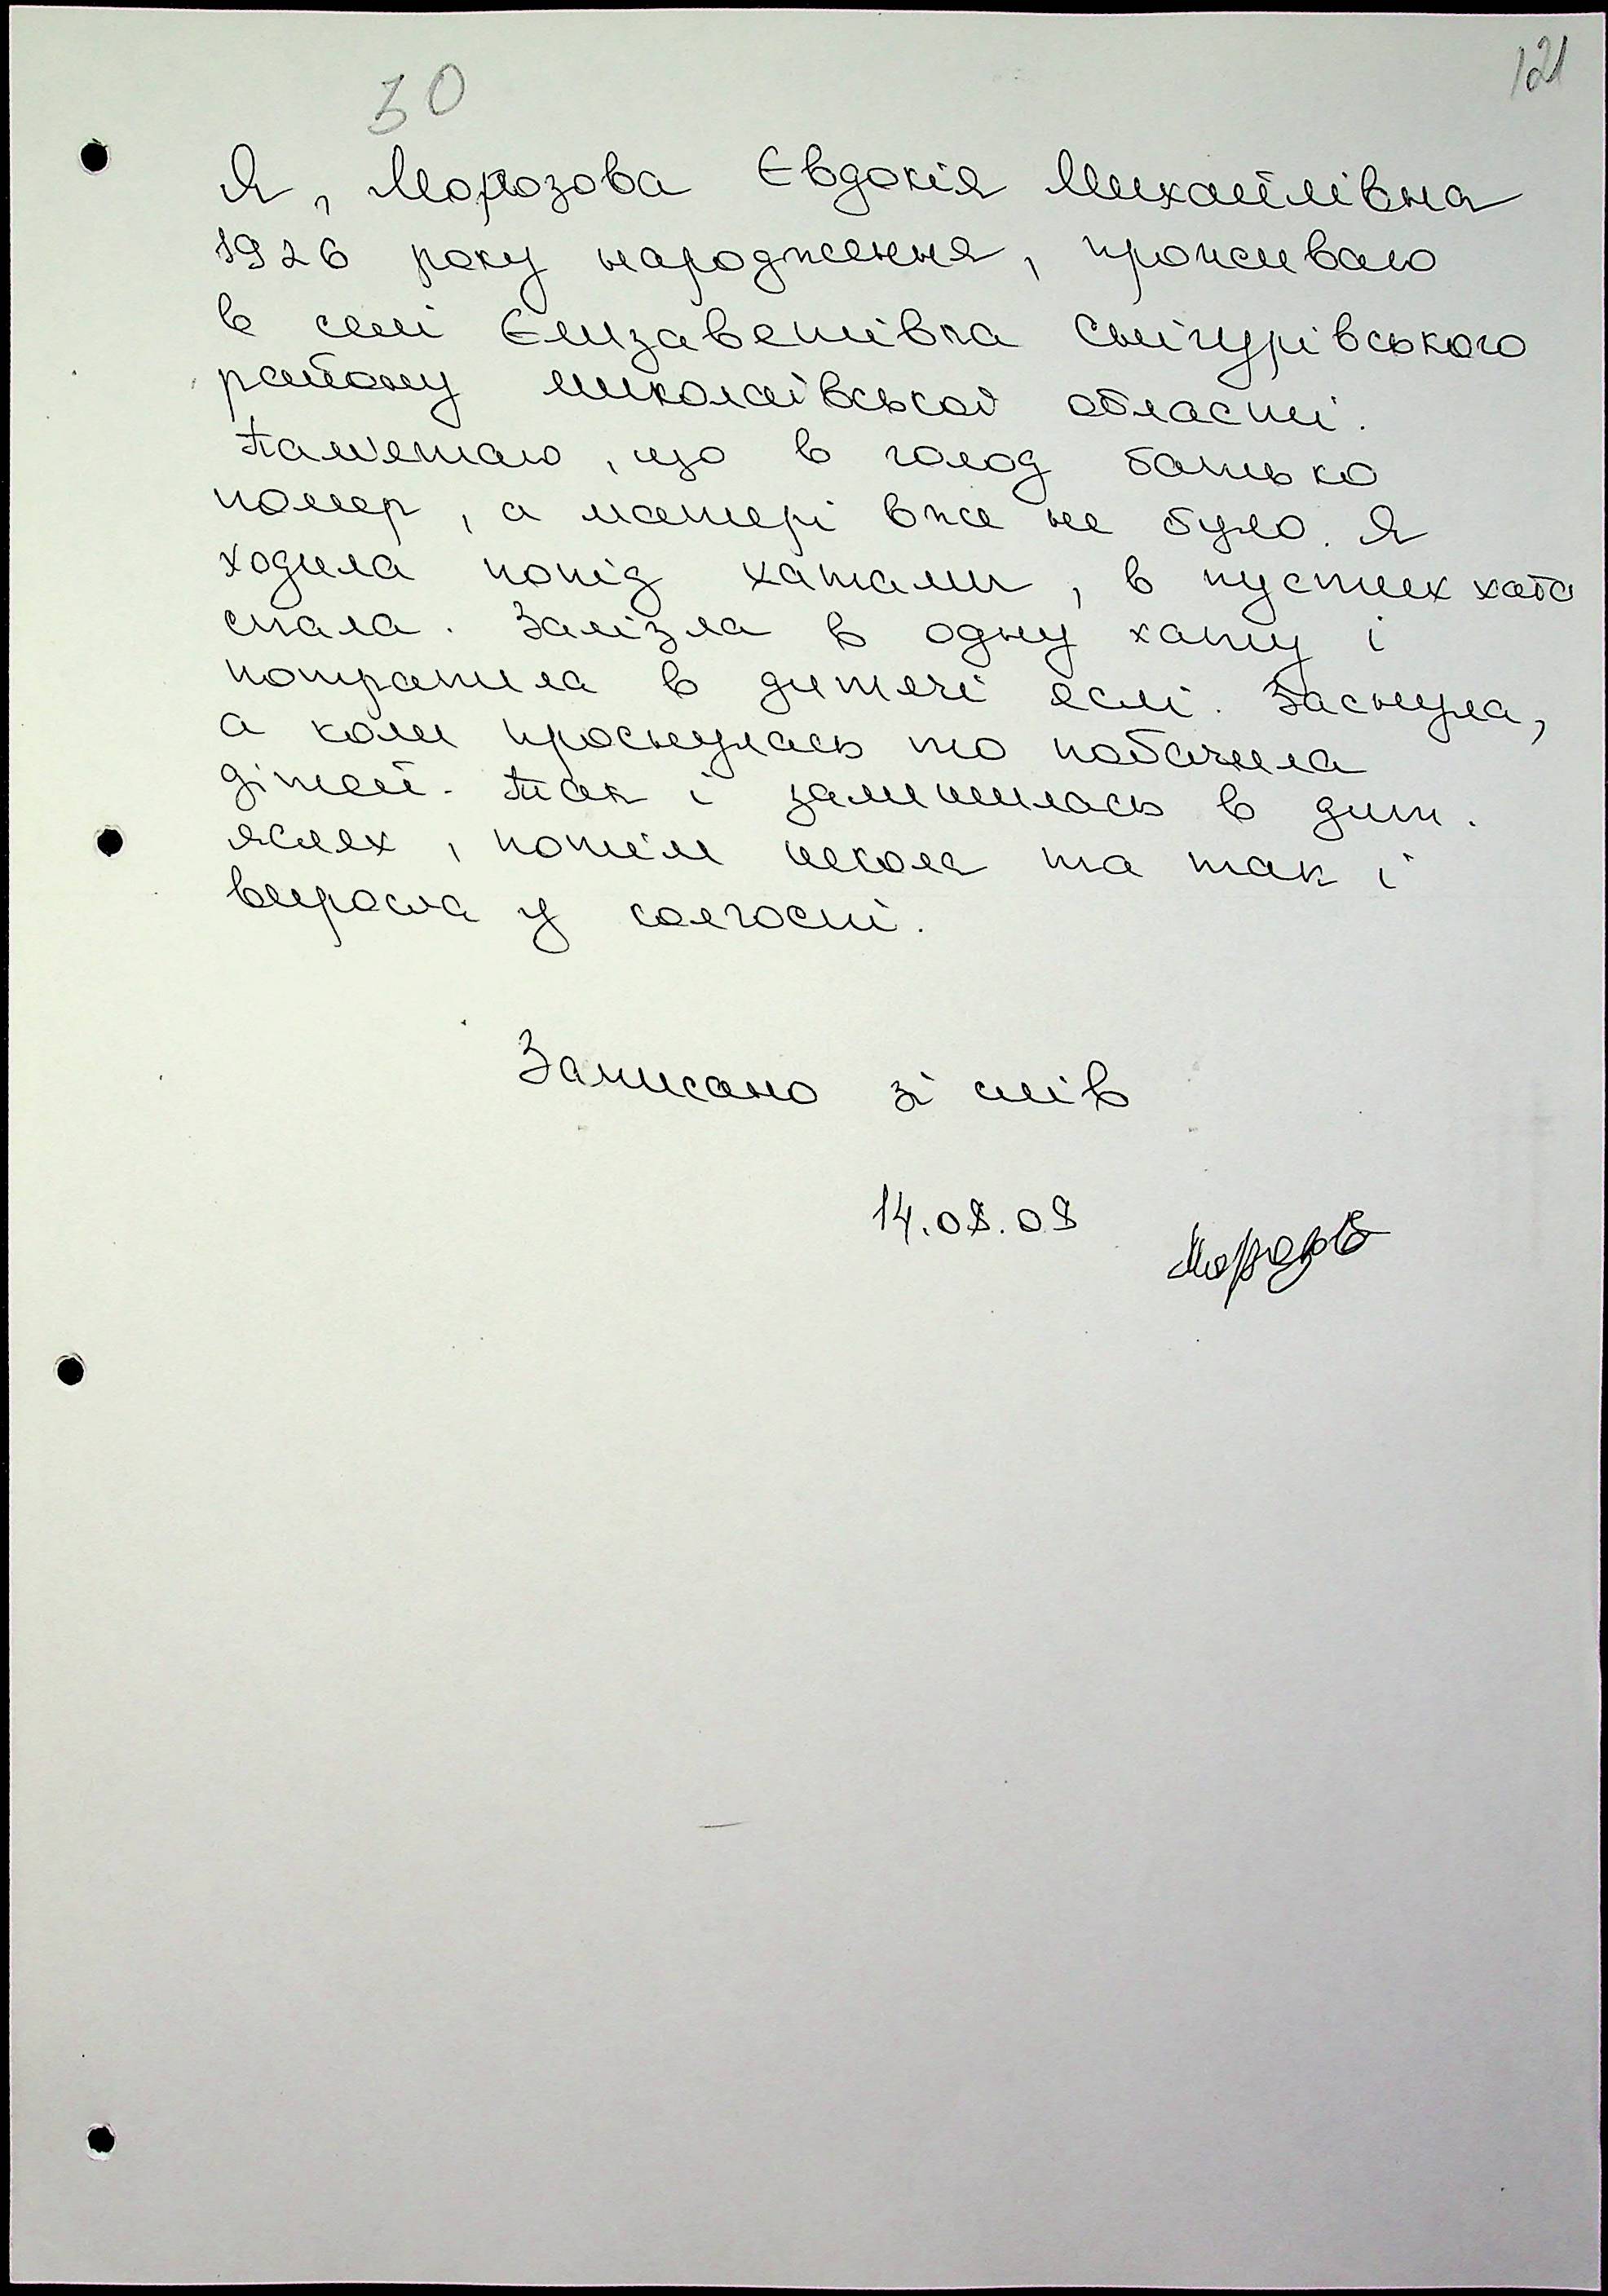 30
121
Я, Морозова Євдокія Михайлівна
1926 року народження, проживаю
в селі Єлизаветівка Снігурівського
району Миколаївської області.
Пам'ятаю, що в голод батько
помер, а матері вже не було. Я
ходила попід хатами, в пустих хата
спала. Залізла в одну хату і
потрапила в дитячі яслі. Заснула,
а коли проснулась то побачила
дітей. Так і залишилась в дит.
яслях, потім школа та так і
виросла у колгоспі.
Записано зі слів
14.08.08
Морозов